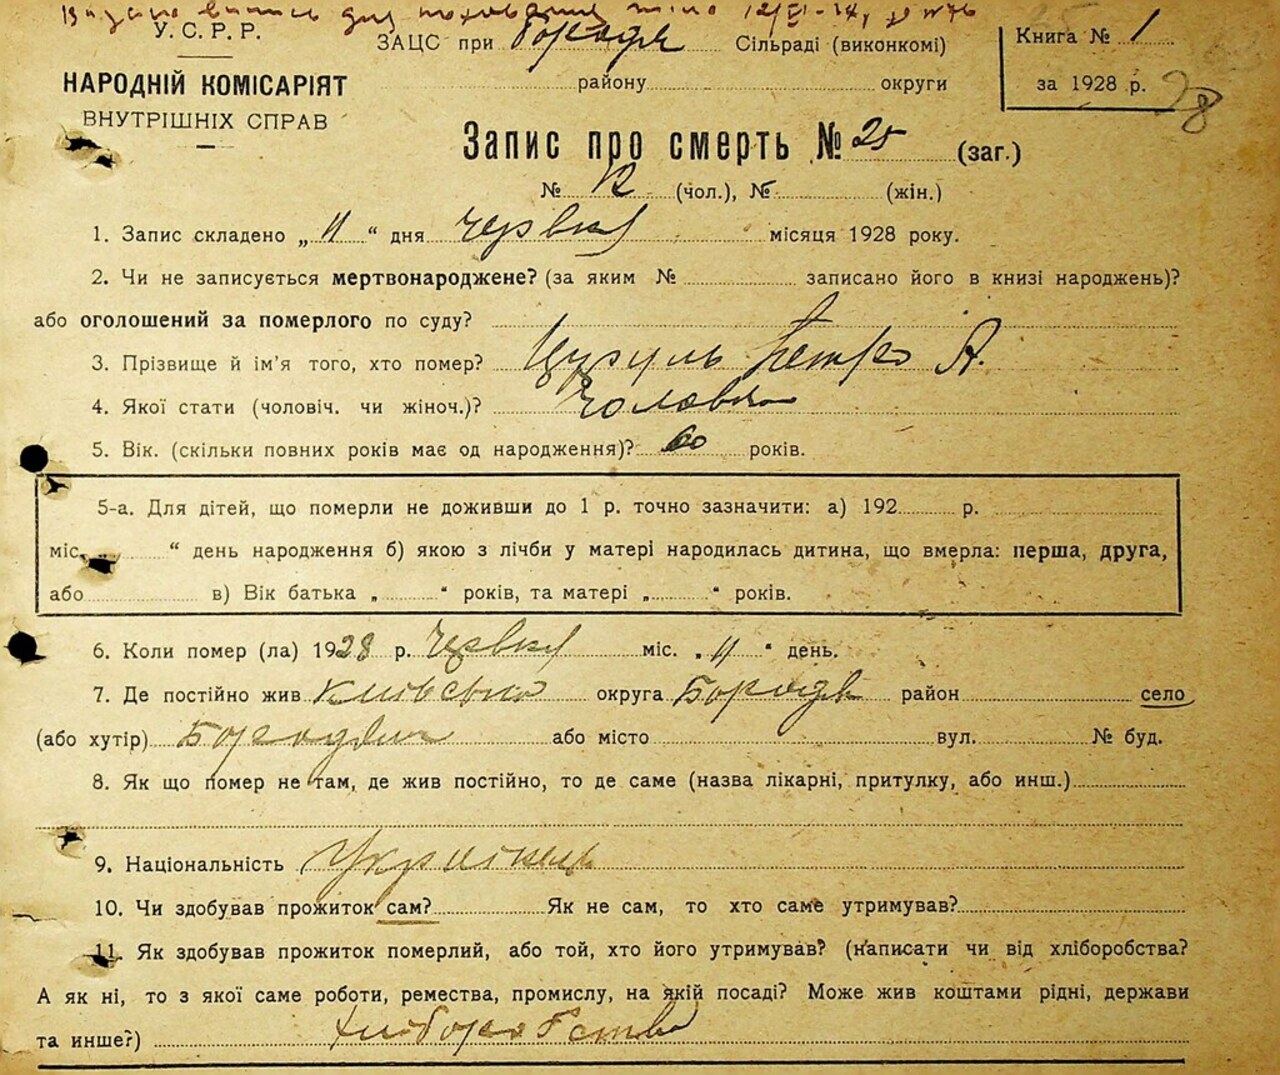 Видано випись для поховання тіла 12/VI-28,
У. С. Р. Р.
НАРОДНІЙ КОМІСАРІЯТ
ВНУТРІШНІХ СПРАВ
ЗАЦС при Бородя Сільраді (виконкомі)
району округи
Книга № 1
за 1928 р.
28
Запис про смерть № 25 (заг.)
№ 12 (чол.), № (жін.)
1. Запис складено „ 11 “ дня червня місяця 1928 року.
2. Чи не записується мертвонароджене? (за яким № записано його в книзі народжень)?
або оголошений за померлого по суду?
3. Прізвище й ім'я того, хто помер? Цуруль Петро А.
4. Якої стати (чоловіч. чи жіноч.)? Чоловіч
5. Вік. (скільки повних років має од народження)? 60 років.
5-а. Для дітей, що померли не доживши до 1 р. точно зазначити: а) 192 р.
міс. „ “ день народження б) якою з лічби у матері народилась дитина, що вмерла: перша, друга,
або в) Вік батька „ “ років, та матері „ “ років.
6. Коли помер (ла) 1928 р. червня міс. „ 11 “ день.
7. Де постійно жив Київської округа Бородя район село
(або хутір) або місто вул. № буд.
8. Як що помер не там, де жив постійно, то де саме (назва лікарні, притулку, або инш.)
9. Національність Українець
10. Чи здобував прожиток сам? Як не сам, то хто саме утримував?
11. Як здобував прожиток померлий, або той, хто його утримував? (написати чи від хліборобства?
А як ні, то з якої саме роботи, ремества, промислу, на якій посаді? Може жив коштами рідні, держави
та инше?) Хліборобство